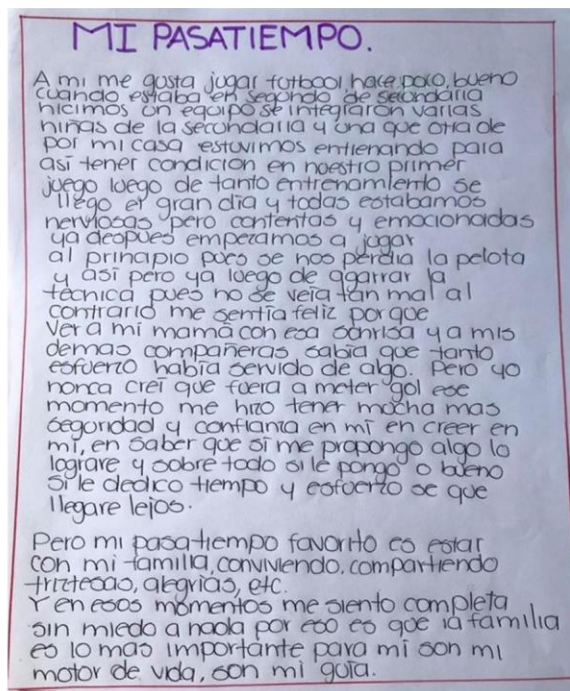 MI PASATIEMPO.
A mi me gusta jugar futbool, hace poco, bueno
cuando estaba en segundo de secundaria
hicimos un equipo se integraron varias
niñas de la secundaria y una que otra de
por mi casa estuvimos entrenando para
así tener condición en nuestro primer
juego luego de tanto entrenamiento se
llego el gran día y todas estabamos
nerviosas pero contentas y emocionadas
ya despues empezamos a jugar
al principio pues se nos perdia la pelota
y así pero ya luego de agarrar la
técnica pues no se veía tan mal al
contrario me sentía feliz porque
ver a mi mamá con esa sonrisa y a mis
demas compañeras sabía que tanto
esfuerzo había servido de algo. Pero yo
nunca creí que fuera a meter gol ese
momento me hizo tener mucha mas
seguridad y confianza en mí en creer en
mí, en saber que si me propongo algo lo
lograre y sobre todo si le pongo o bueno
si le dedico tiempo y esfuerzo se que
llegare lejos.
Pero mi pasatiempo favorito es estar
con mi familia, conviviendo, compartiendo
triztezas, alegrías, etc.
Y en esos momentos me siento completa
sin miedo a nada por eso es que la familia
es lo mas importante para mi son mi
motor de vida, son mi guía.